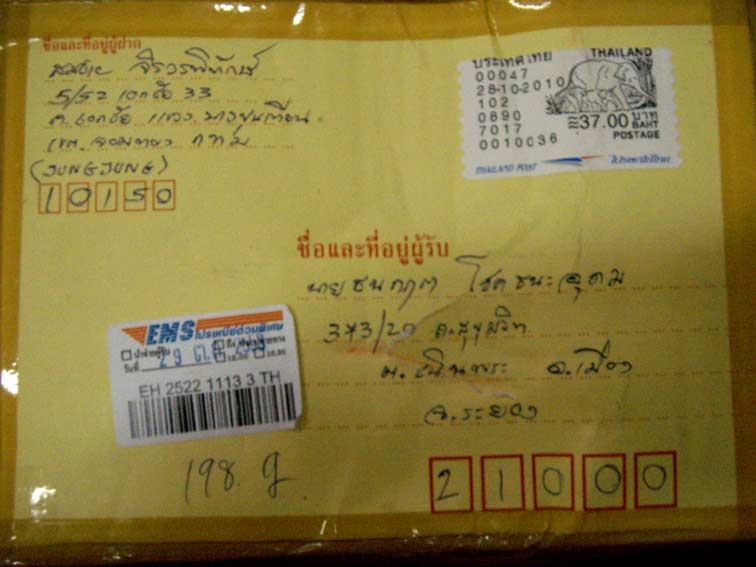 ชื่อและที่อยู่ผู้ฝาก
จิรวรพิทักษ์
5/52 เอกชัย 33
ถ.เอกชัย แขวง บางขุนเทียน
เขต.จอมทอง กทม
(JUNGJUNG)
10150
ประเทศไทย THAILAND
00047
28-10-2010
102
0890
7017
0010036
37.00 บาท
BAHT
POSTAGE
THAILAND POST ไปรษณีย์ไทย
ชื่อและที่อยู่ผู้รับ
นายธนกฤต โชคชนะอุดม
373/20 ถ.สุขุมวิท
ต.เนินพระ อ.เมือง
จ.ระยอง
21000
EMS ไปรษณีย์ด่วนพิเศษ
วันที่ 29 ต.ค.
EH 2522 1113 3 TH
198. g.